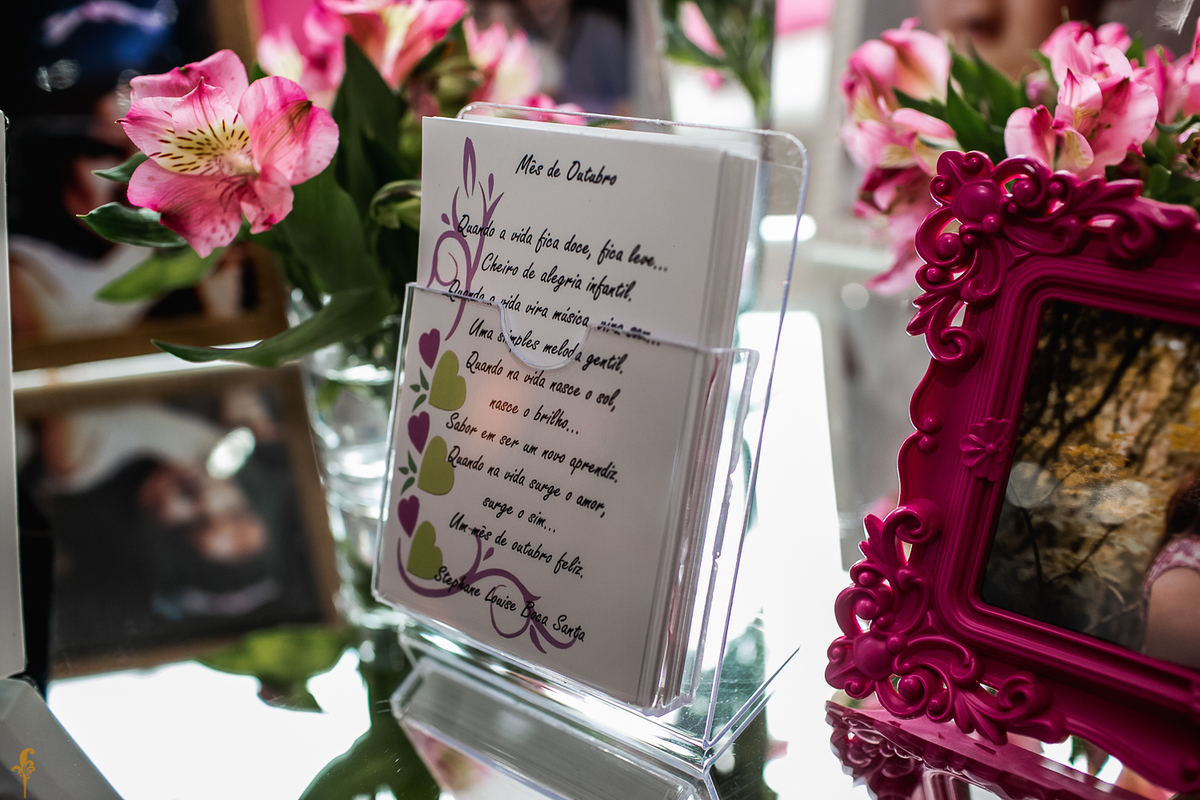 Mês de Outubro
Quando a vida fica doce, fica leve...
Cheiro de alegria infantil.
Quando a vida vira música, vira som...
Uma simples melodia gentil.
Quando na vida nasce o sol,
nasce o brilho...
Sabor em ser um novo aprendiz.
Quando na vida surge o amor,
surge o sim...
Um mês de outubro feliz.
Stephane Louise Boca Santa